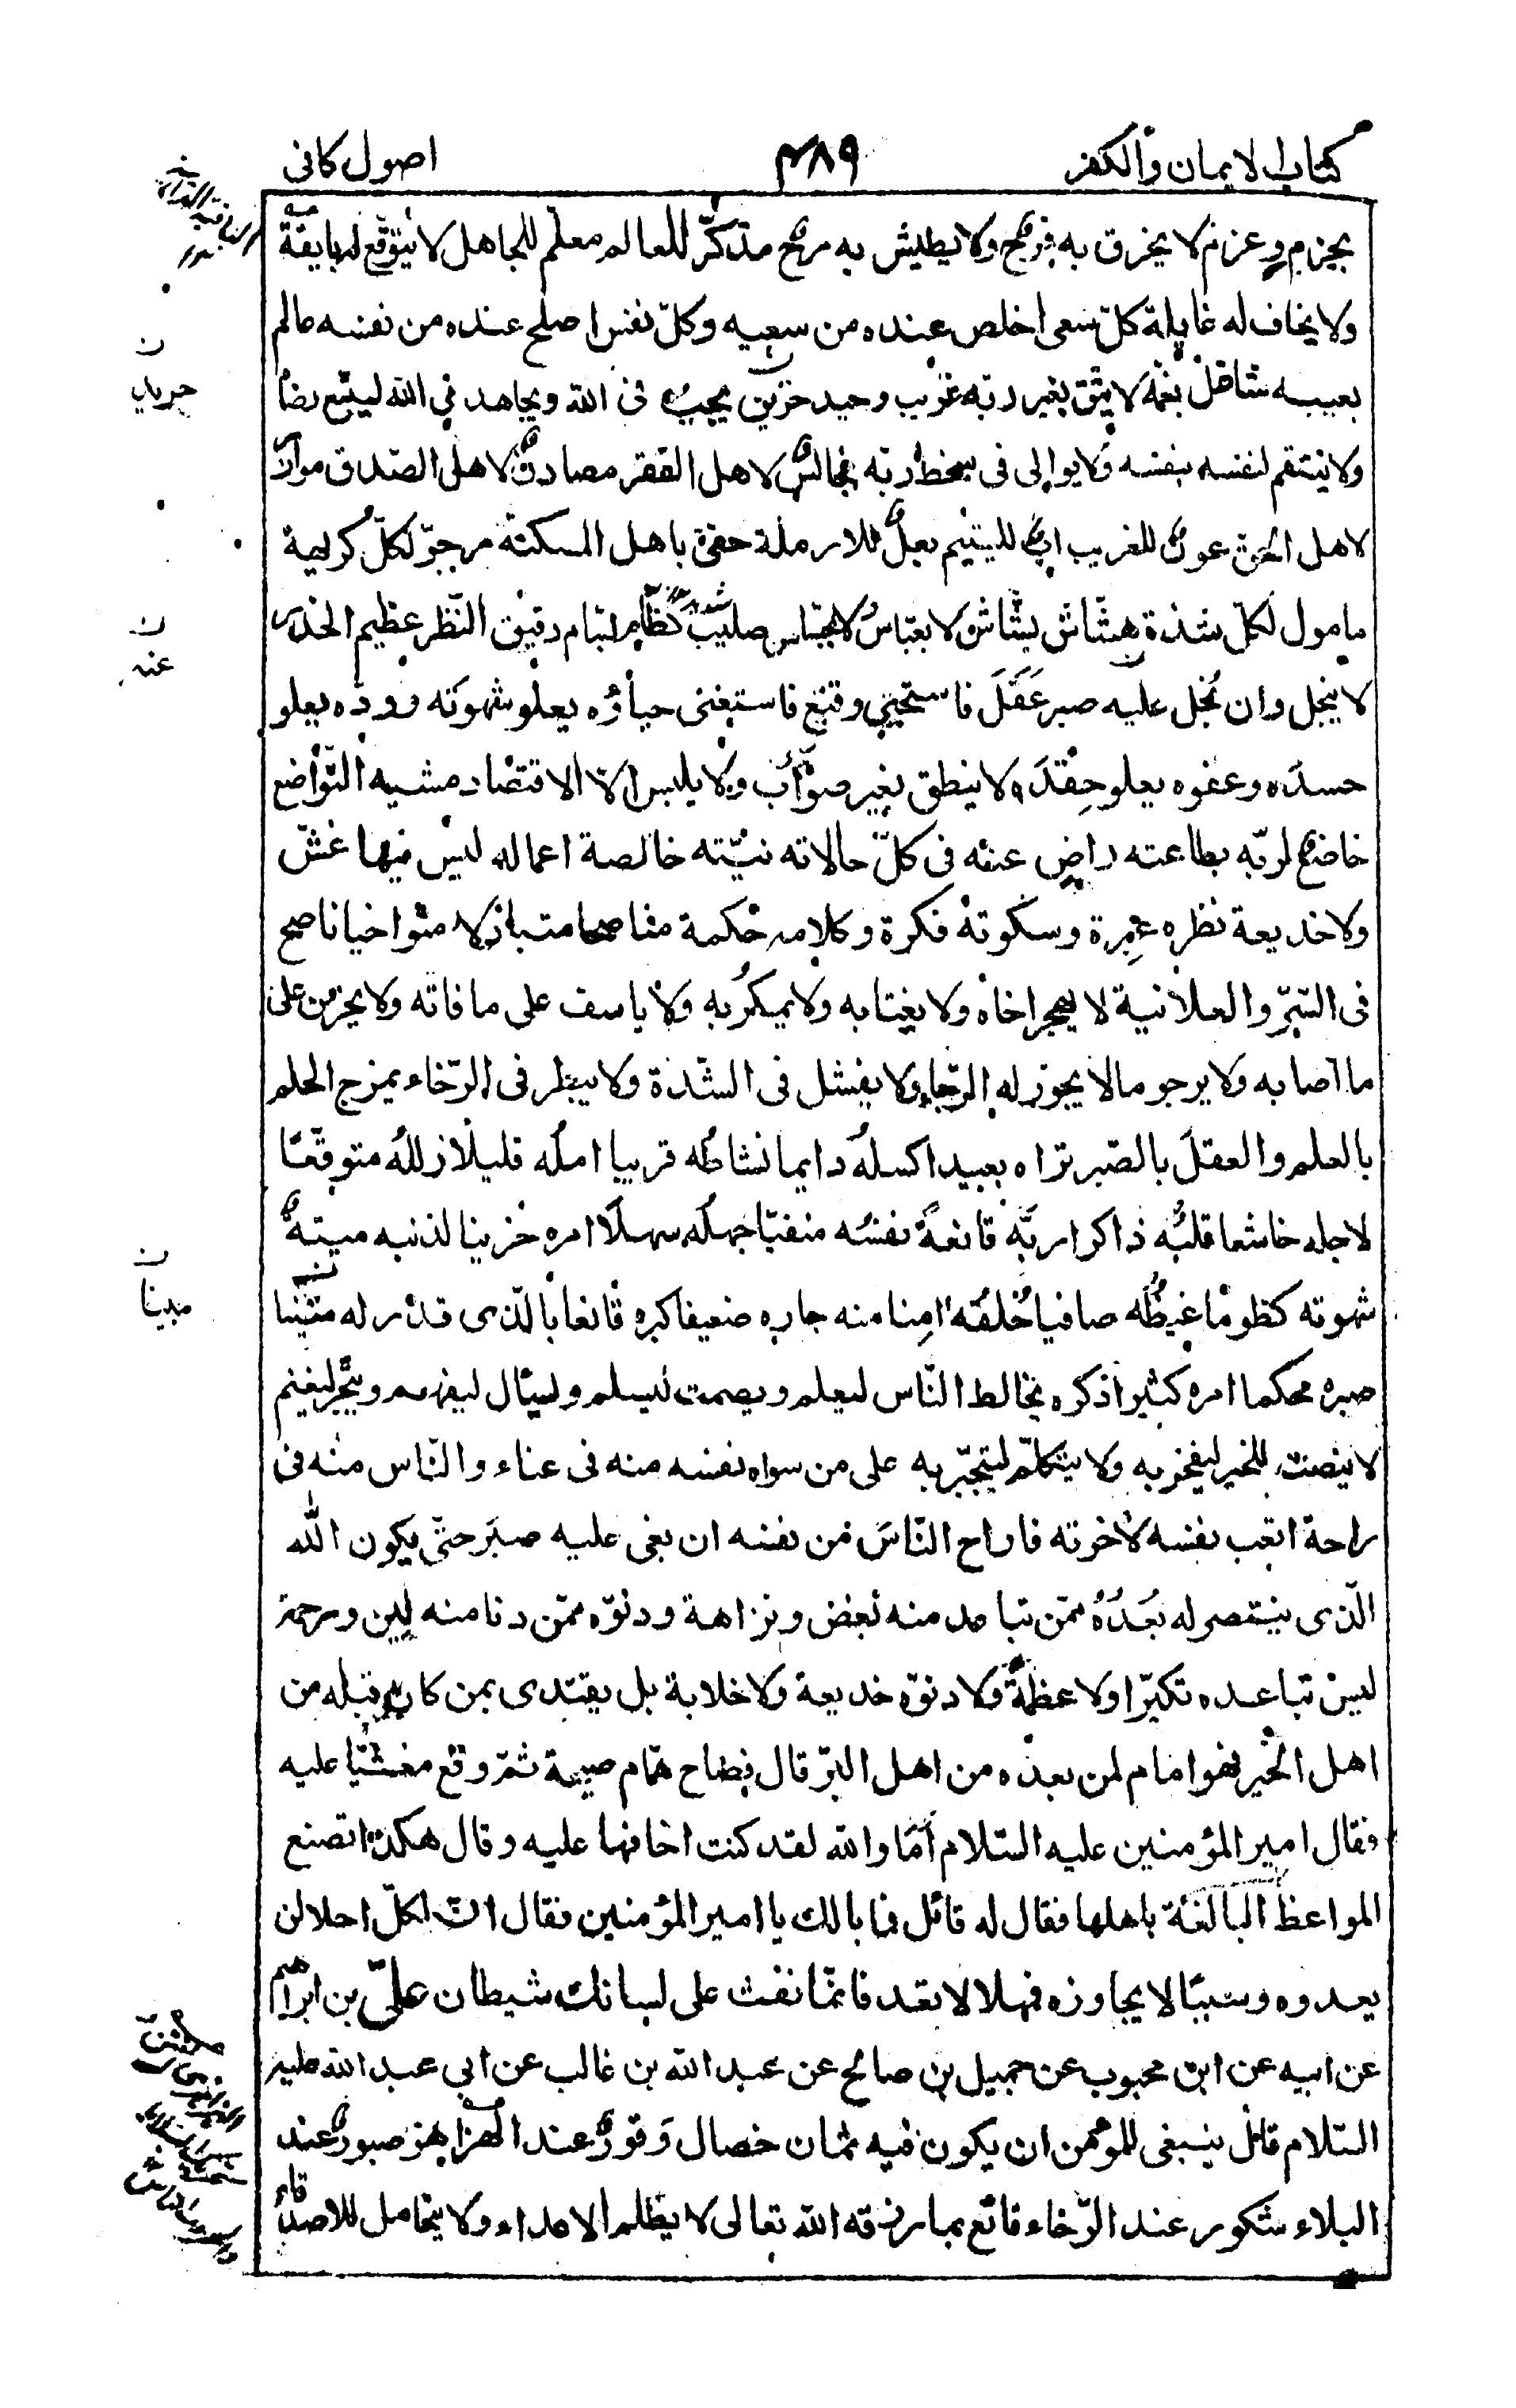 كتاب الايمان والكفر ٤٨٩ اصول كافى
بحزم وعزم لا يخرق به فرح ولا يطيش به مرح مذكّر للعالم معلّم للجاهل لا يتوقّع له بايقة
ولا يخاف له غايلة كلّ سعى اخلص عنده من سعيه وكلّ نفس اصلح عنده من نفسه عالم
بعيبه شاغل بغمّه لا يثق بغير ربّه غريب وحيد حزين يحبّ فى الله ويجاهد فى الله ليتبع رضاه
ولا ينتقم لنفسه بنفسه ولا يوالى فى سخط ربّه مجالس لاهل الفقر مصادق لاهل الصّدق موازر
لاهل الحقّ عون للغريب اب لليتيم بعل للارملة حفىّ باهل المسكنة مرجوّ لكلّ كريهة
مامول لكلّ شدّة هشّاش بشّاش لا بعبّاس لا بجسّاس صليب كظّام بسّام دقيق النّظر عظيم الحذر
لا يبخل وان بخل عليه صبر عَقَلَ فاستحيى وقنع فاستغنى حياؤه يعلو شهوته وودّه يعلو
حسده وعفوه يعلو حِقْدَه ولا ينطق بغير صواب ولا يلبس الّا الاقتصاد مشيه التّواضع
خاضع لربّه بطاعته راضٍ عنه فى كلّ حالاته نيّته خالصة اعماله ليس فيها غشّ
ولا خديعة نظره عبرة وسكوته فكرة وكلامه حكمة مناصحا متباذلا متواخيا ناصح
فى السّرّ والعلانية لا يهجر اخاه ولا يغتابه ولا يمكرُ به ولا ياسف على ما فاته ولا يحزن على
ما اصابه ولا يرجو ما لا يجوز له الرّجاء ولا يفشل فى الشّدّة ولا يبطر فى الرّخاء يمزج الحلم
بالعلم والعقلَ بالصّبر تراه بعيدا كسلهُ دايما نشاطُه قريبا املُه قليلا زللُه متوقّعًا
لاجله خاشعا قلبُه ذاكرا ربَّه قانعةً نفسُه منفيّا جهلُه سهلًا امره حزينا لذنبه ميتةٌ
شهوته كظومًا غيظُه صافيا خُلقُه امِنا منه جاره ضعيفا كبره قانعا بالّذى قدّر له متينا
صبره محكما امره كثيرا ذكره يخالط النّاس ليعلم ويصمت ليسلم ويسال ليفهم ويتّجر ليغنم
لا ينصت للخير ليفخر به ولا يتكلّم ليتجبّر به على من سواه نفسه منه فى عناء والنّاس منه فى
راحة اتعب نفسه لاخرته فاراح النّاسَ من نفسه ان بغى عليه صبَر حتّى يكون الله
الّذى ينتصر له بُعدُهُ ممّن تباعد منه بُغض ونزاهة ودنوّه ممّن دنا منه لين ورحمة
ليس تباعده تكبّرا ولا عظمةً ولا دنوّه خديعة ولا خلابة بل يقتدى بمن كان قبله من
اهل الخير فهو امام لمن بعده من اهل البرّ قال فصاح همّام صيحة ثمّ وقع مغشيّا عليه
فقال امير المؤمنين عليه السّلام أَمَا والله لقد كنت اخافها عليه وقال هكذا تصنع
المواعظ البالغة باهلها فقال له قائل فما بالك يا امير المؤمنين فقال انّ لكلّ اجلا لن
يعدوه وسببًا لا يجاوزه فمهلا لا تعد فانّما نفث على لسانك شيطان علىّ بن ابراهيم
عن ابيه عن ابن محبوب عن جميل بن صالح عن عبد الله بن غالب عن ابى عبد الله عليه
السّلام قال ينبغى للمؤمن ان يكون فيه ثمان خصال وَقورٌ عند الهزاهز صبورٌ عند
البلاء شكور عند الرّخاء قانع بما رزقه الله تعالى لا يظلم الاعداء ولا يتحامل للاصدقاء
ن
ن
عنه
ن
مبينا